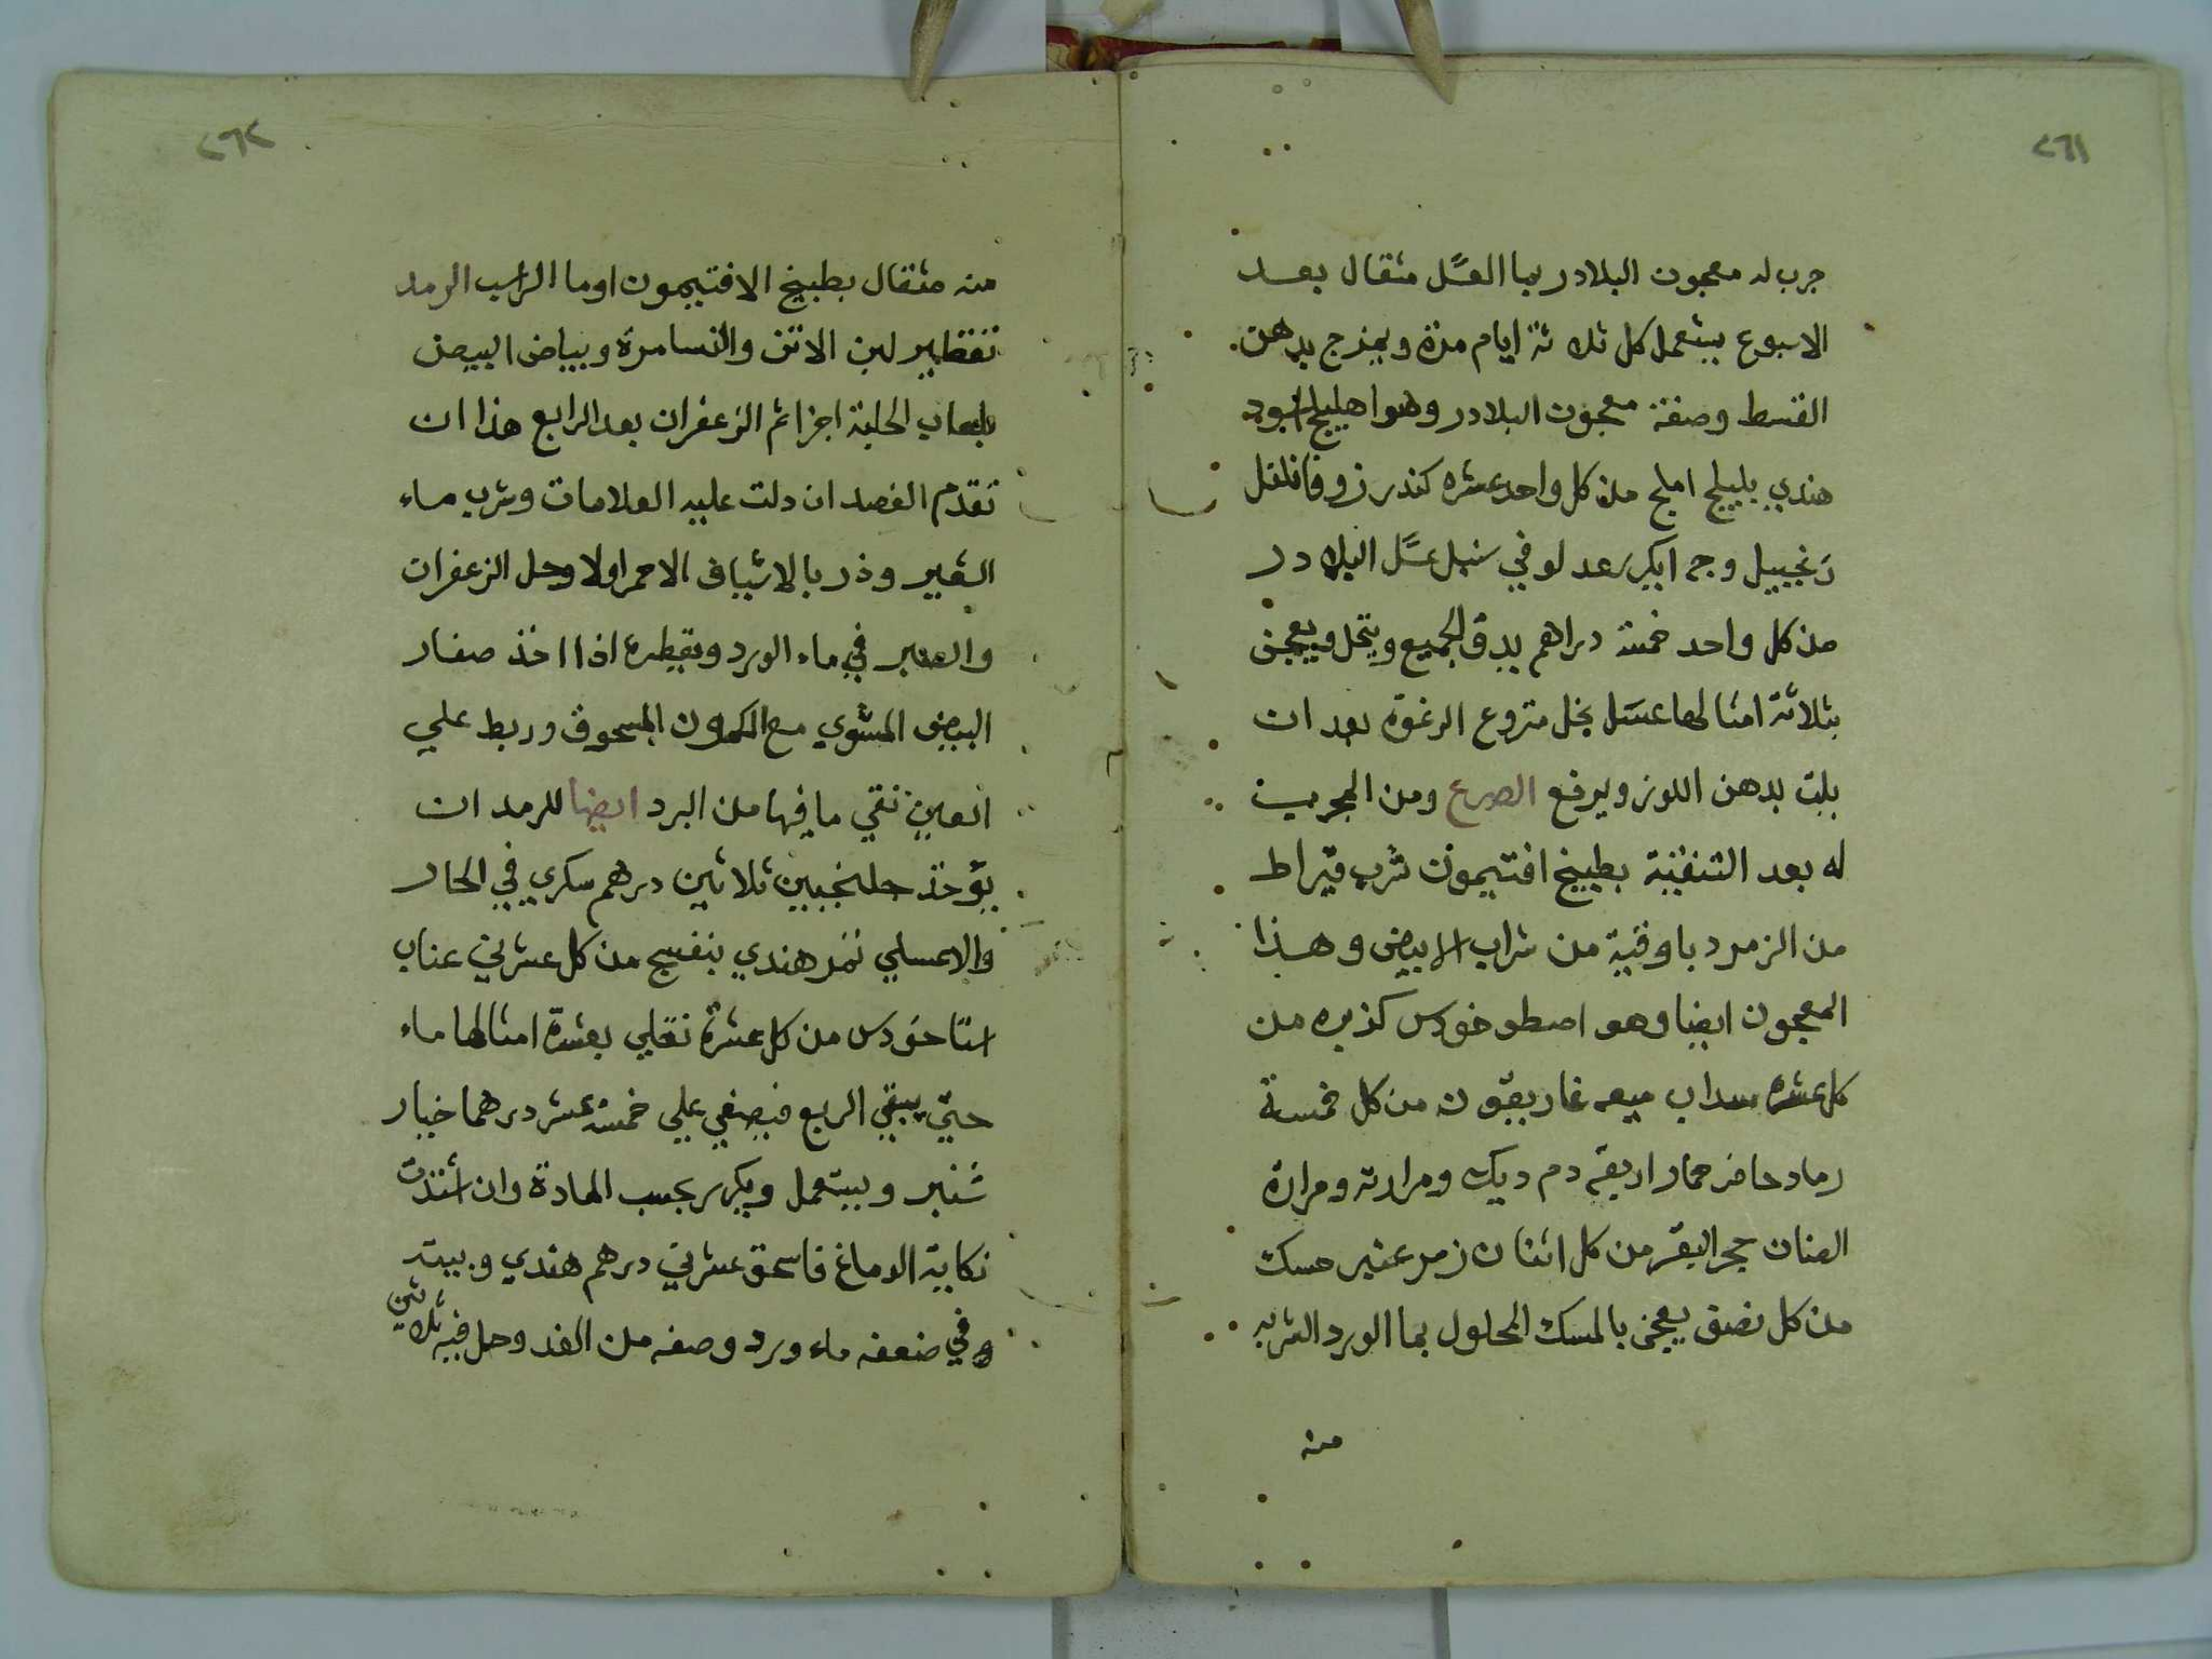 ٢٦١
جرب له معجون البلادر بما العسل مثقال بعد
الاسبوع يستعمل كل ثلاثة ايام مرة ويمزج بدهن
القسط وصفة معجون البلادر وهو اهليلج اسود
هندي بليلج املج من كل واحد عشره كندر زوفا فلفل
زنجبيل وج ابكر سعد لوفي سنبل عسل البلادر
من كل واحد خمسة دراهم يدق الجميع وينخل ويعجن
بثلاثة امثالها عسل نحل منزوع الرغوة بعد ان
يلت بدهن اللوز ويرفع الصرع ومن المجرب
له بعد التنقية بطبيخ افتيمون شرب قيراط
من الزمرد باوقية من شراب الابيض وهذا
المعجون ايضا وهو اصطوخودس كذبره من
كل عشره سداب ميعه غاريقون من كل خمسة
رماد حافر حمار اربعة دم ديك ومرارته ومرارة
الضان حجر البقر من كل اثنان زمر عنبر مسك
من كل نصف يعجن بالمسك المحلول بما الورد الشربه
منه
٢٦٢
منه مثقال بطبيخ الافتيمون اوما الراسب الرمد
تقطير لبن الاتن والنسا مرة وبياض البيض
بلعاب الحلبة اجزا ثم الزعفران بعد الرابع هذا ان
تقدم الفصد ان دلت عليه العلامات وشرب ماء
الشعير وذر بالاشياف الاحمر اولا وحل الزعفران
والصبر في ماء الورد وتقطيره اذا اخذ صفار
البيض المشوي مع الكمون المسحوق وربط علي
العين نقي ما فيها من البرد ايضا للرمد ان
يؤخذ جلنجبين ثلاثين درهم سكري في الحار
والاعسلي تمر هندي بنفسج من كل عشرين عناب
اسنا خودس من كل عشرة تغلي بعشرة امثالها ماء
حتي يبقي الربع فيصفي علي خمسة عشر درهما خيار
شنبر ويستعمل ويكرر بحسب المادة وان اشتدت
نكاية الدماغ فاسحق عشرين درهم هندي وبيته
في ضعفه ماء ورد وصفه من الغد وحل فيه ثلاثين